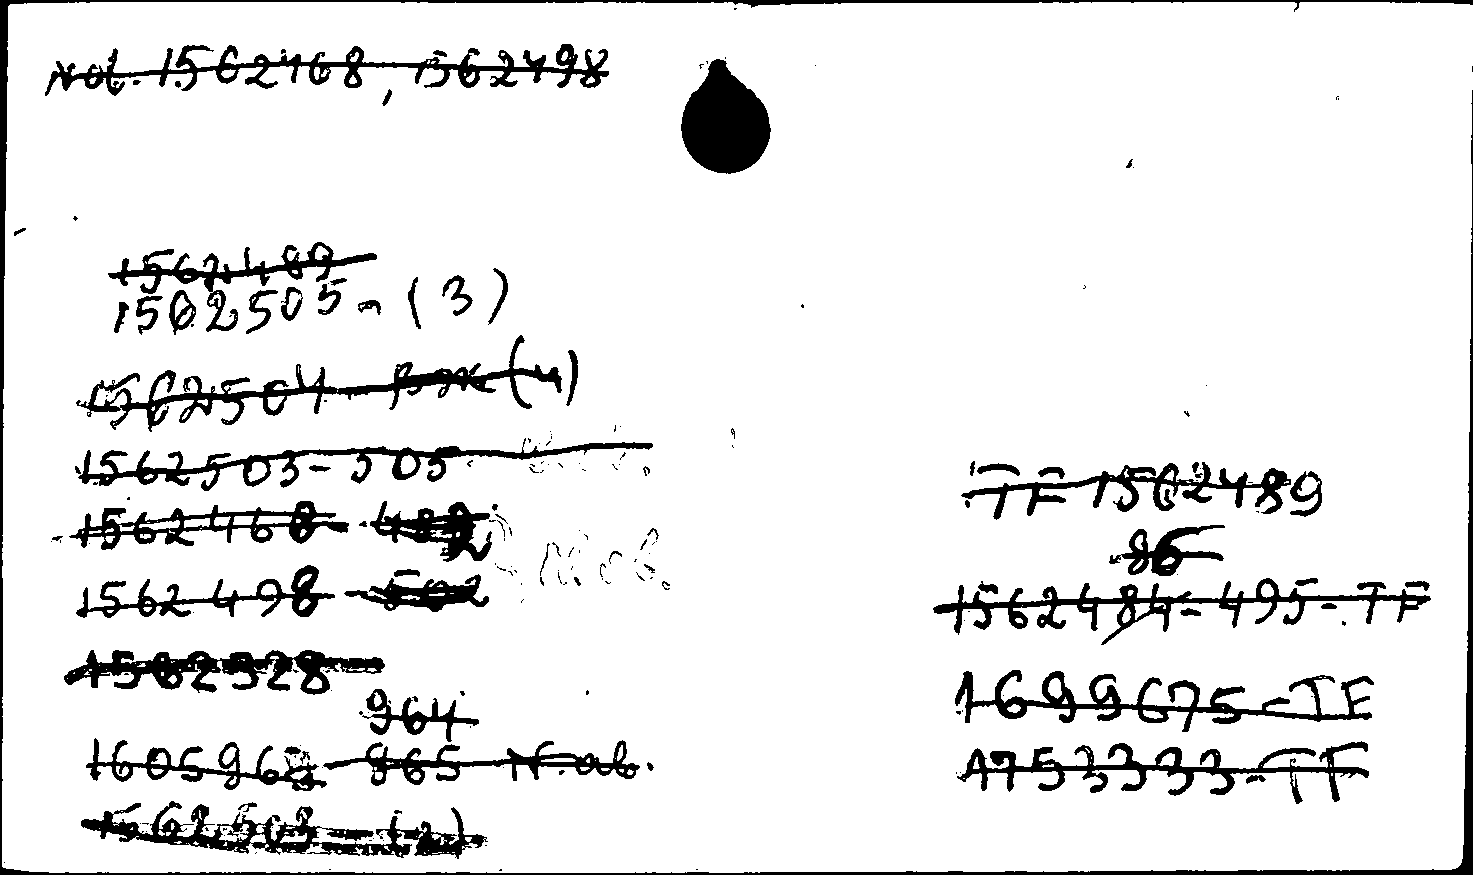 Not. 1562468, 1562498
1562489
1562505 - (3)
1562504 - (4)
1562503 - 505
1562468 - 489
1562498 - 502
1562528
964
1605963 - 965 N. ab.
1562503 - (2)
TF 1562489
86
1562484 - 495 - TF
1699675 - TF
1753333 - TF